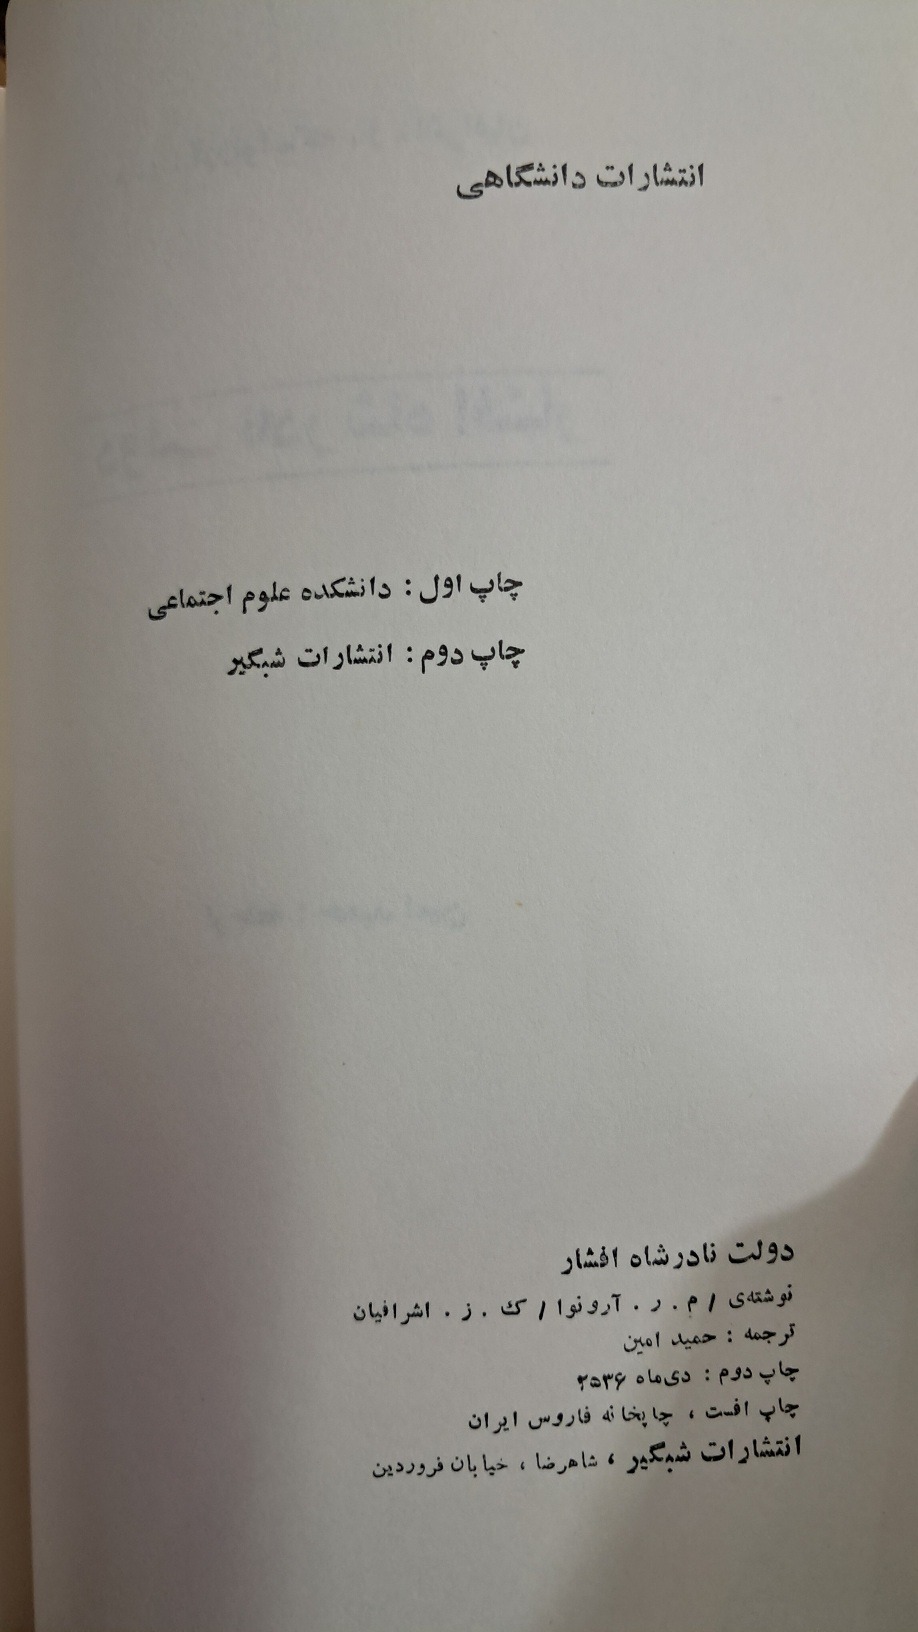 انتشارات دانشگاهی
چاپ اول : دانشکده علوم اجتماعی
چاپ دوم : انتشارات شبگیر
دولت نادرشاه افشار
نوشته‌ی / م . ر . آرونوا / ک . ز . اشرافیان
ترجمه : حمید امین
چاپ دوم : دی‌ماه ۲۵۳۶
چاپ افست ، چاپخانه فاروس ایران
انتشارات شبگیر ، شاهرضا ، خیابان فروردین